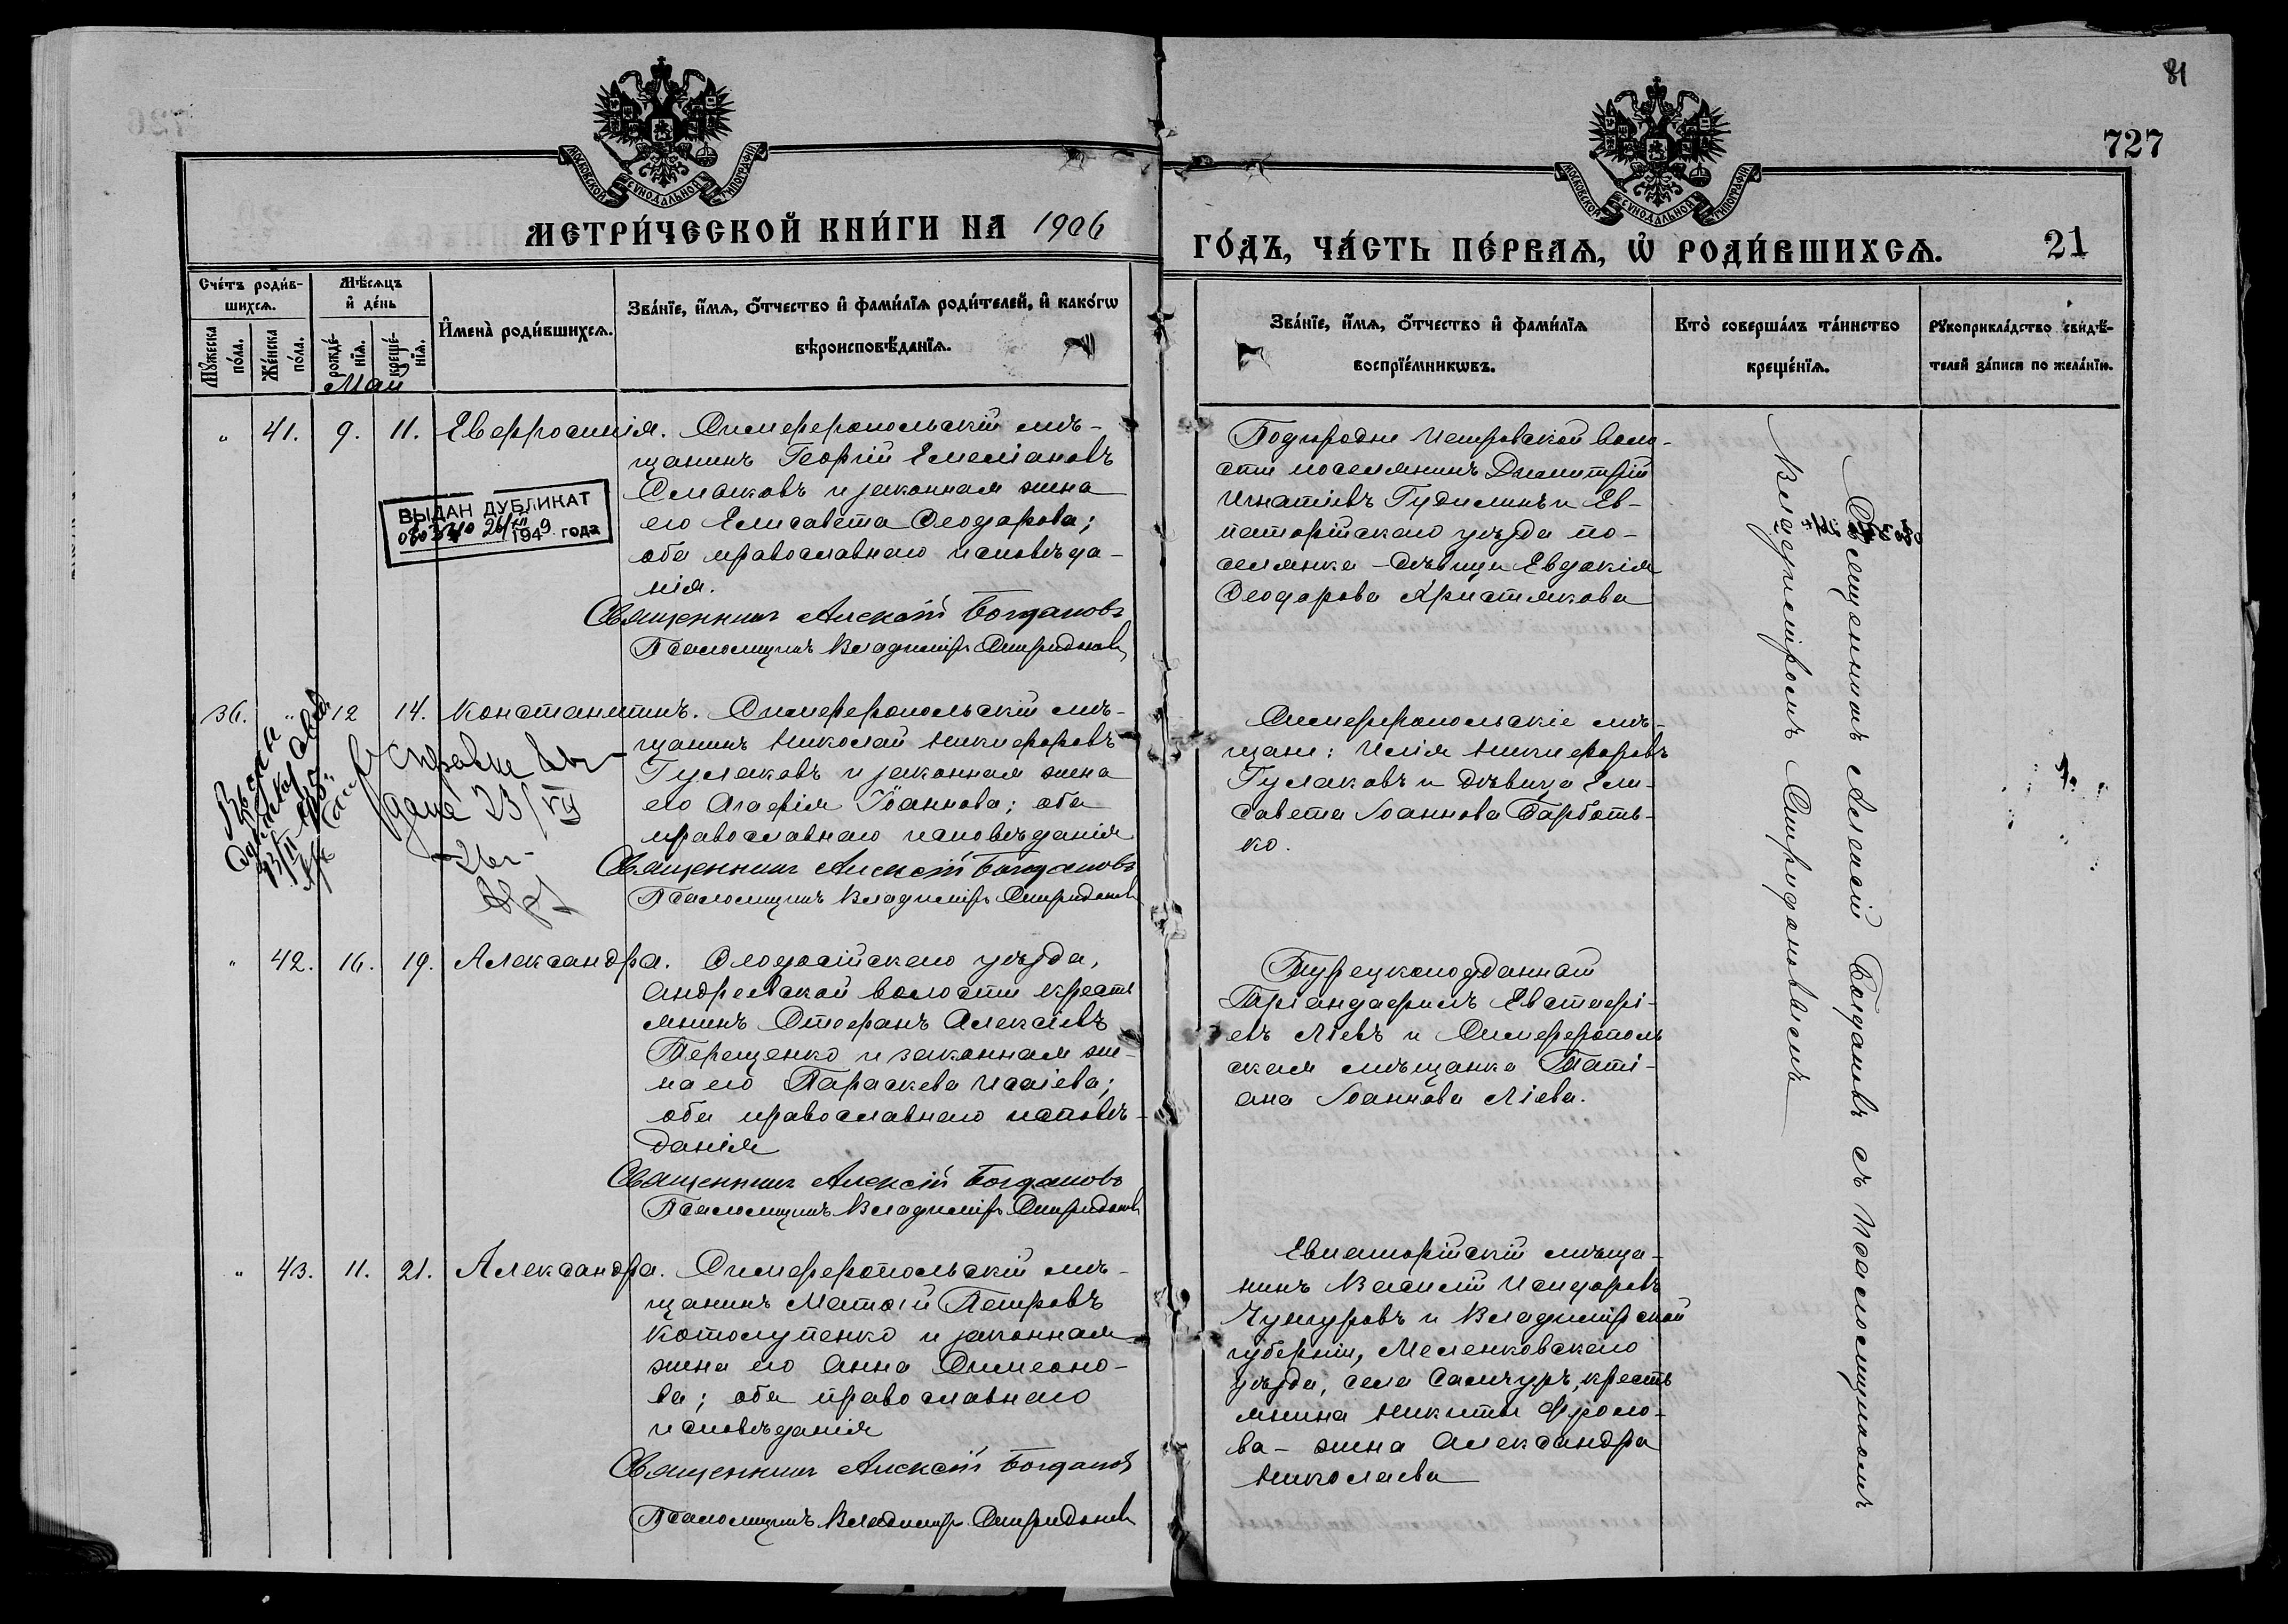 81
727
МОСКОВСКОЙ СѴНОДАЛЬНОЙ ТИПОГРАФІИ
МОСКОВСКОЙ СѴНОДАЛЬНОЙ ТИПОГРАФІИ
МЕТРИ́ЧЕСКОЙ КНИ́ГИ НА 1906
ГО́ДЪ, ЧА́СТЬ ПЕ́РВАѦ, Ѡ҆ РОДИ́ВШИХСѦ. 21
Сче́тъ роди́в-
шихсѧ.
Мꙋ́жеска по́ла.
Же́нска по́ла.
Мѣ́сѧцъ
и҆ де́нь
рожде́-
нїѧ.
креще́-
нїѧ.
И҆мена̀ роди́вшихсѧ.
Зва́нїе, и҆́мѧ, ѻ҆́тчество и҆ фами́лїѧ роди́телей, и҆ како́гѡ
вѣроисповѣ́данїѧ.
Зва́нїе, и҆́мѧ, ѻ҆́тчество и҆ фами́лїѧ
воспрїе́мникѡвъ.
Кто̀ соверша́лъ та́инство
креще́нїѧ.
Рꙋкоприкла́дство свидѣ́-
телей за́писи по жела́нїю.
Май
" 41. 9. 11. Евфросинія. Симферопольскій мѣ-
щанинъ Георгій Емеліановъ
Смаковъ и законная жена
его Елисавета Ѳеодорова;
оба православнаго исповѣда-
нія.
Священникъ Алексій Богдановъ
Псаломщикъ Владиміръ Спиридоновъ
ВЫДАН ДУБЛИКАТ
1949 года
Подгородне Петровской воло-
сти поселянинъ Димитрій
Игнатіевъ Гудилинъ и Ев-
паторійскаго уѣзда по-
селянка - дѣвица Евдокія
Ѳеодорова Христякова
Священникъ Алексій Богдановъ съ псаломщикомъ
Владиміромъ Спиридоновымъ
36. " 12 14. Константинъ. Симферопольскій мѣ-
щанинъ Николай Никифоровъ
Гусаковъ и законная жена
его Агафія Іоаннова; оба
православнаго исповѣданія
Священникъ Алексій Богдановъ
Псаломщикъ Владиміръ Спиридоновъ
справка вы-
дана 23/VII
26г
Симферопольскіе мѣ-
щане: Илія Никифоровъ
Гусаковъ и дѣвица Ели-
савета Іоаннова Гарботь-
ко.
" 42. 16. 19. Александра. Ѳеодосійскаго уѣзда,
Андреевской волости кресть
янинъ Стефанъ Алексіевъ
Терещенко и законная же-
на его Параскева Исаіева;
оба православнаго исповѣ-
данія
Священникъ Алексій Богдановъ
Псаломщикъ Владиміръ Спиридоновъ
Турецкоподданный
Тріандафилъ Евстафі-
евъ Ліевъ и Симферополь
ская мѣщанка Таті-
ана Іоаннова Ліева.
" 43. 11. 21. Александра. Симферопольскій мѣ-
щанинъ Матѳій Петровъ
Котолупенко и законная
жена его Анна Симеоно-
ва; оба православнаго
исповѣданія
Священникъ Алексій Богдановъ
Псаломщикъ Владиміръ Спиридоновъ
Евпаторійскій мѣща-
нинъ Василій Исидоровъ
Чунгуровъ и Владимірской
губерніи, Меленковскаго
уѣзда, села Самчуръ, кресть
янина Никиты Фроло-
ва - жена Александра
Николаева